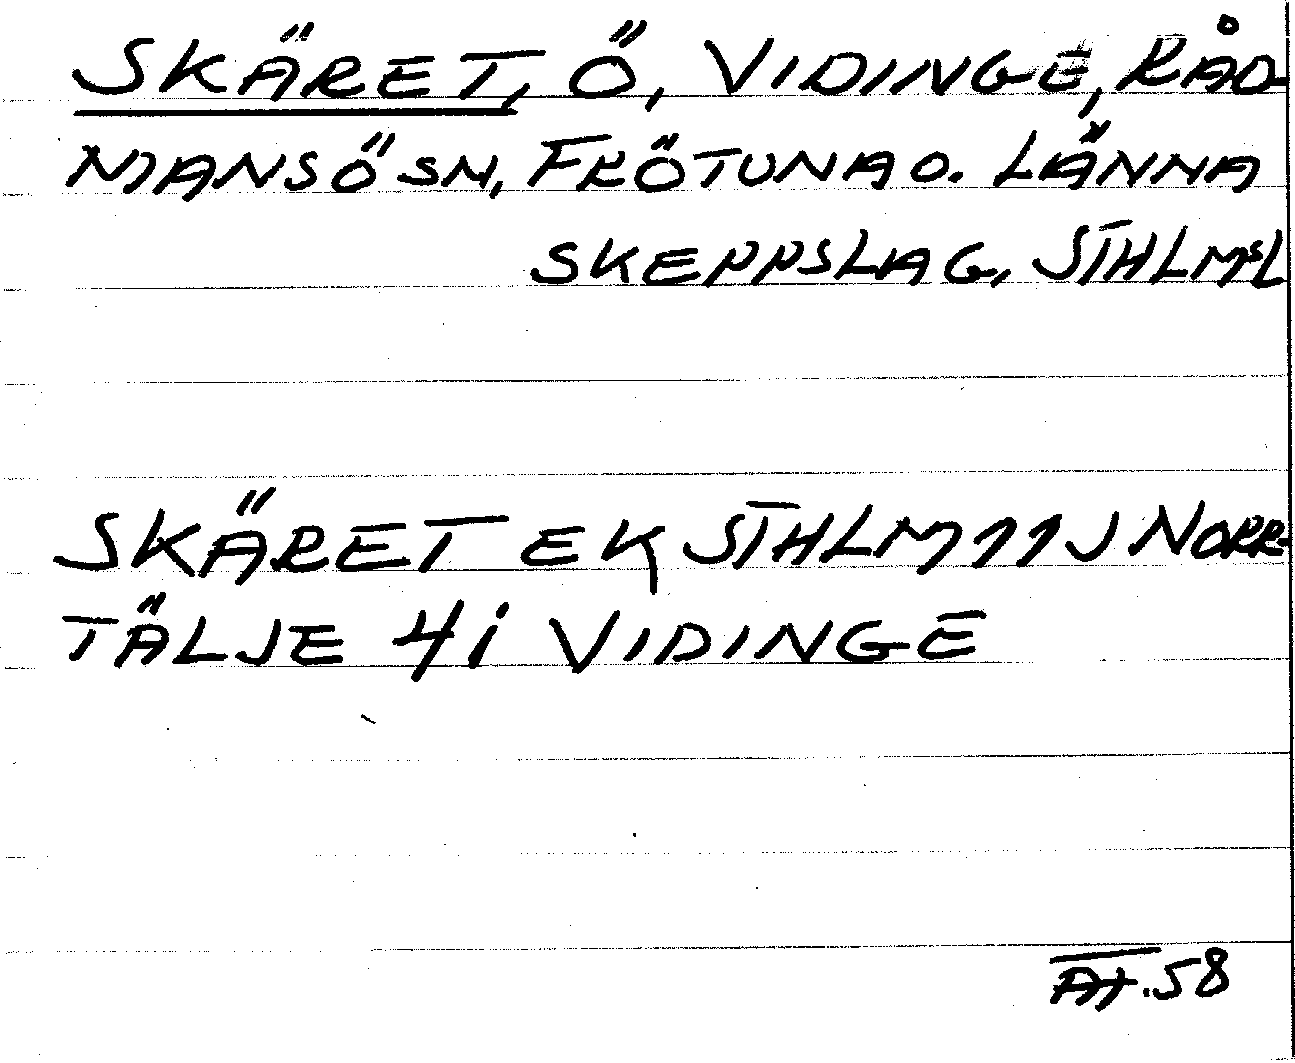 SKÄRET, Ö, VIDINGE, RÅD-
MANSÖ SN, FRÖTUNA O. LÄNNA
SKEPPSLAG, STHLMSL
SKÄRET EK STHLM 11 J NORR-
TÄLJE 4 i VIDINGE
58